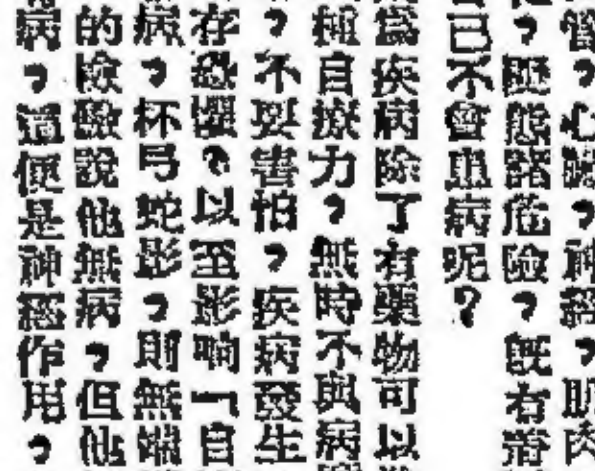 管，心臟，神經，肌肉
，態諸危險，既有潛
己不會血病呢？
為疾病除了有藥物可以
種自療力，無時不與病
，不要害怕，疾病發生
存恐懼，以至影响「自
病，杯弓蛇影，則無端
的險驗說他無病，但他
病，這便是神經作用，